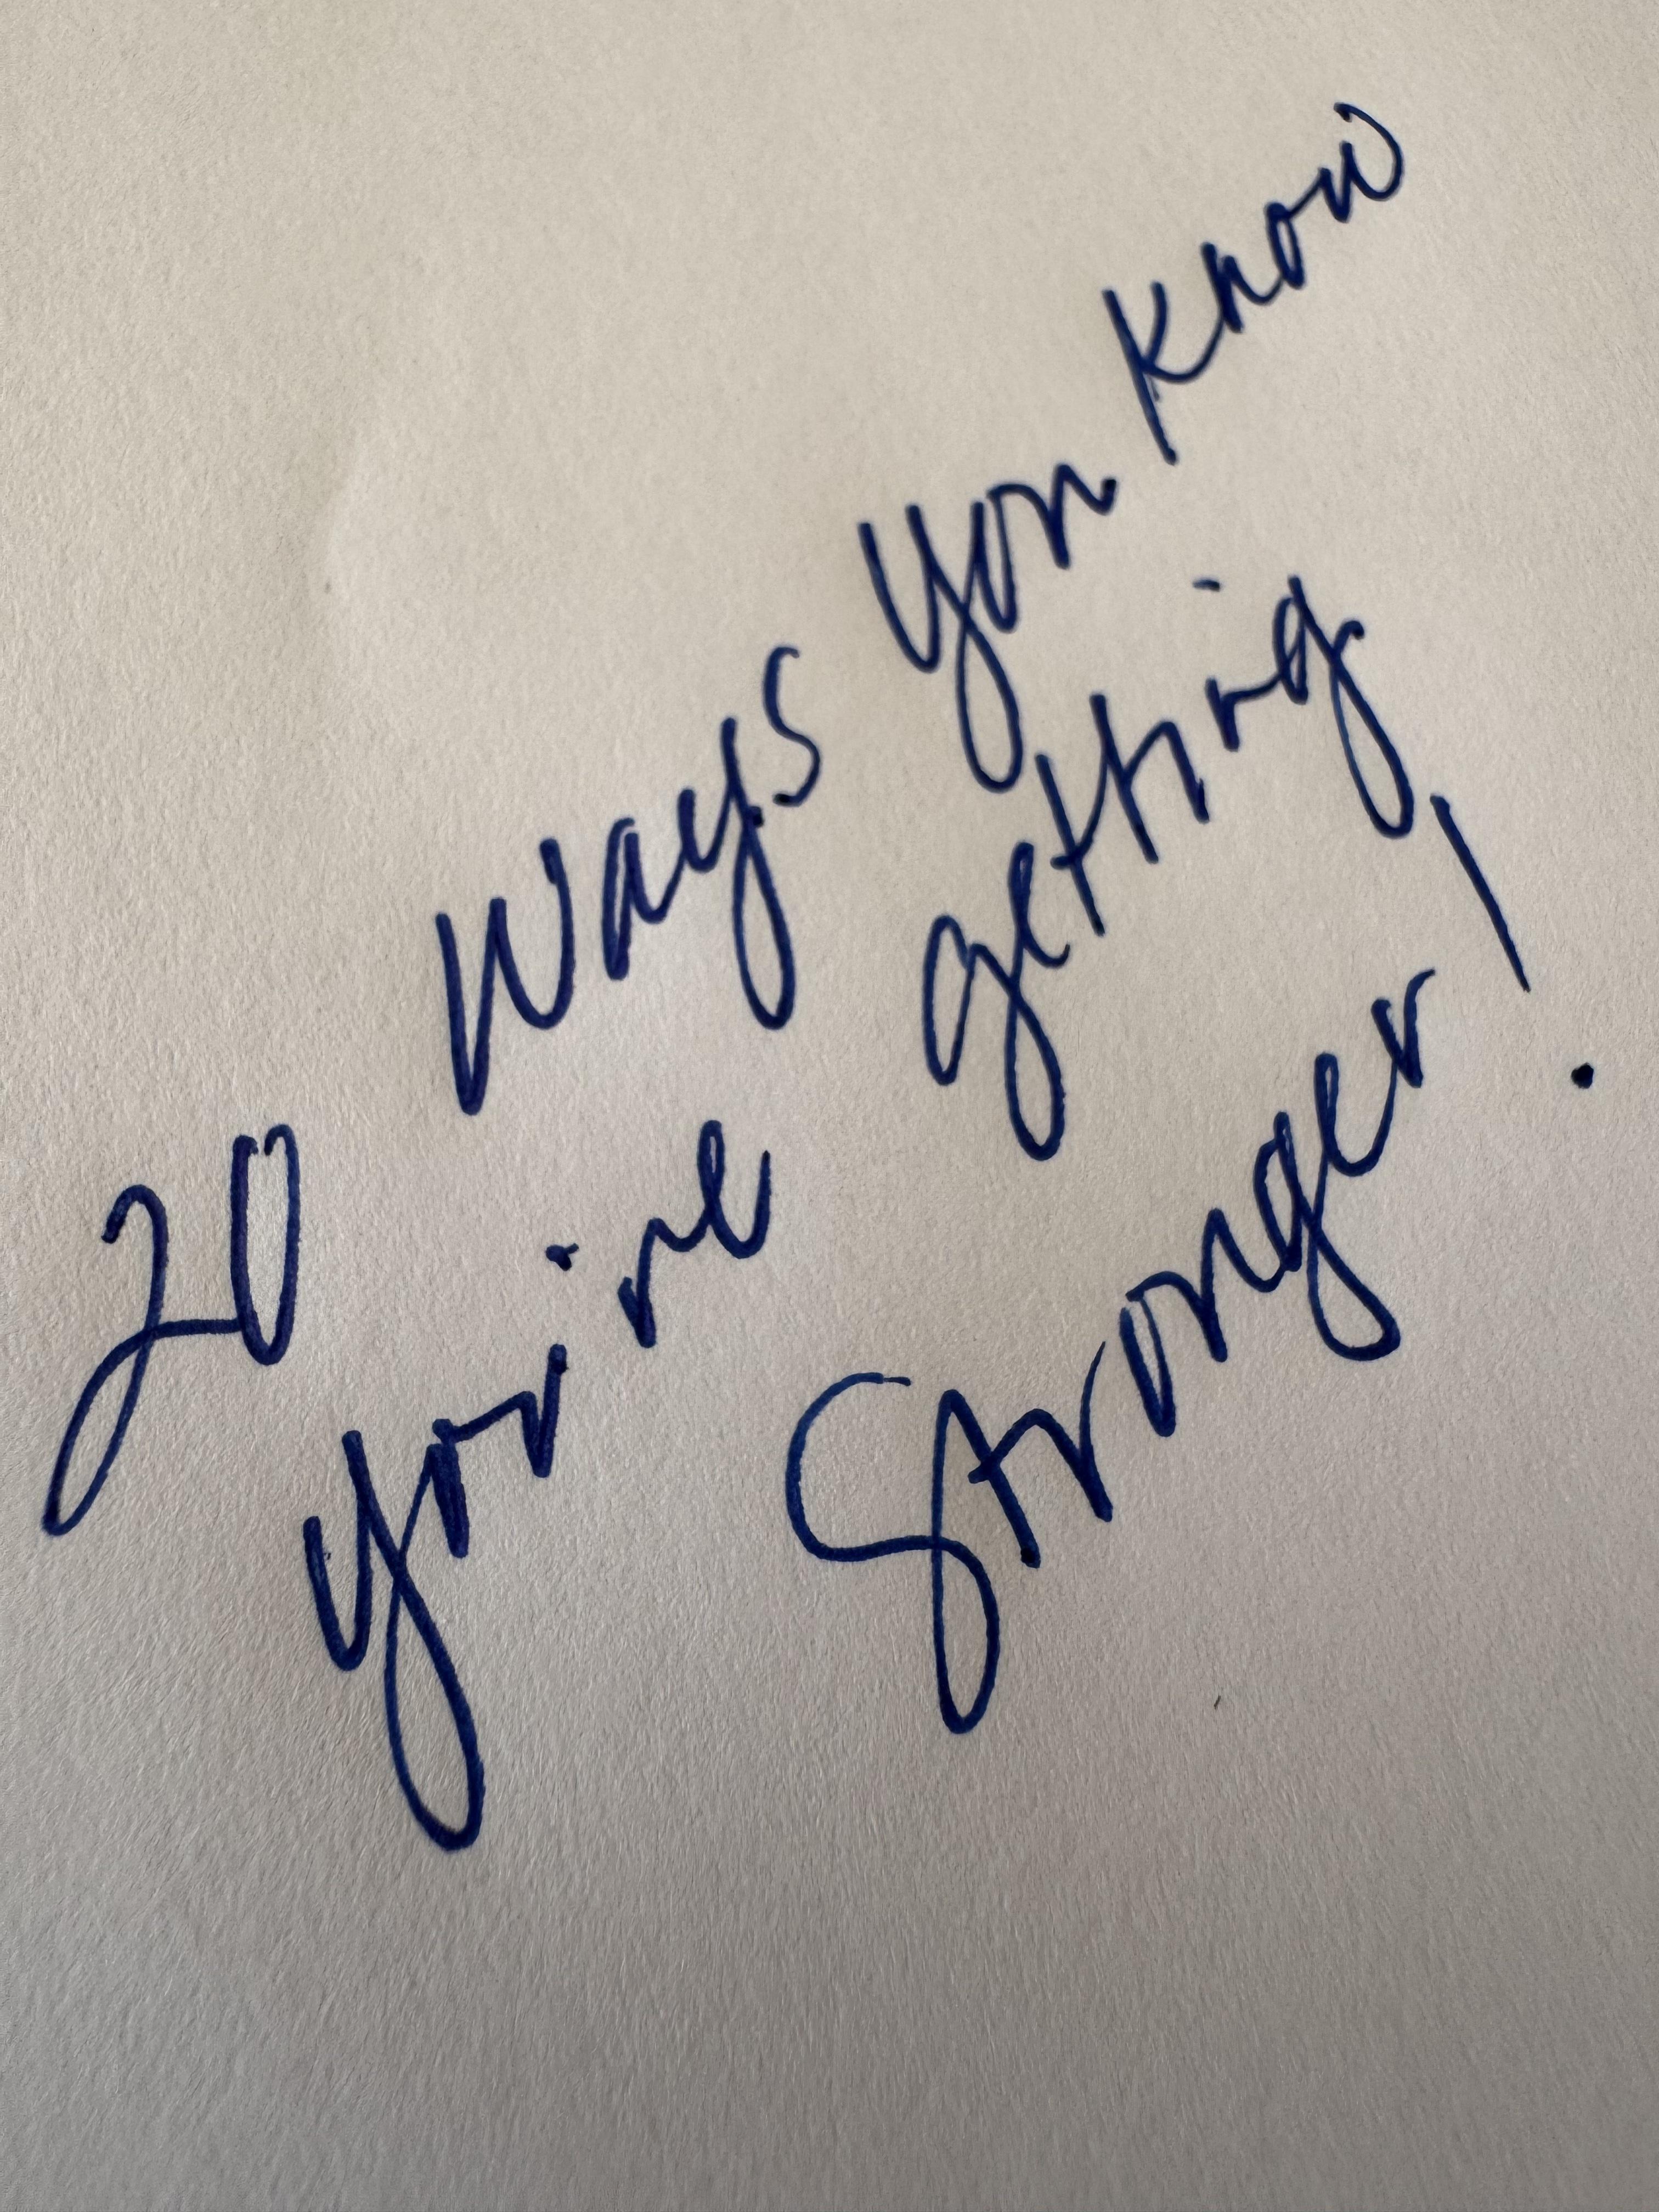 20 ways you know
you're getting
Stronger!